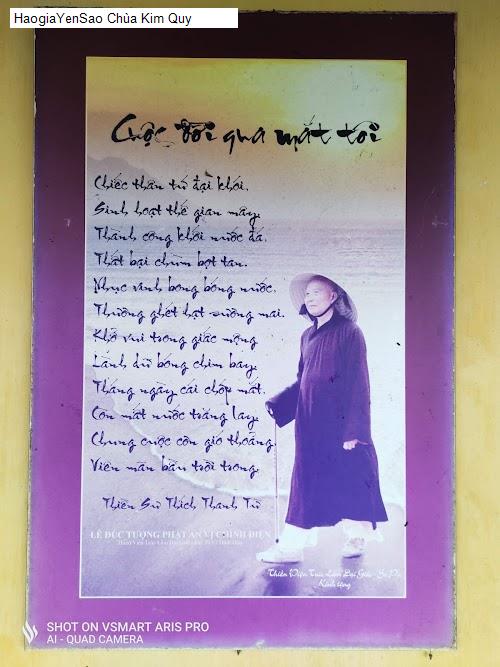 HaogiaYenSao Chùa Kim Quy
Cuộc đời qua mắt tôi
Chiếc thân tứ đại khói.
Sinh hoạt thế gian mây.
Thành công khói nước đá.
Thất bại chùm bọt tan.
Nhục vinh bong bóng nước.
Thương ghét hạt sương mai.
Khổ vui trong giấc mộng
Lánh dữ bóng chim bay.
Tháng ngày cái chớp mắt.
Còn mất nước trăng lay.
Chung cuộc cơn gió thoảng.
Viên mãn bầu trời trong.
Thiền Sư Thích Thanh Từ
LỄ ĐÚC TƯỢNG PHẬT AN VỊ CHÍNH ĐIỆN
Thiền Viện Trúc Lâm Đại Giác - Sa Pa
Kính tặng
SHOT ON VSMART ARIS PRO
AI - QUAD CAMERA